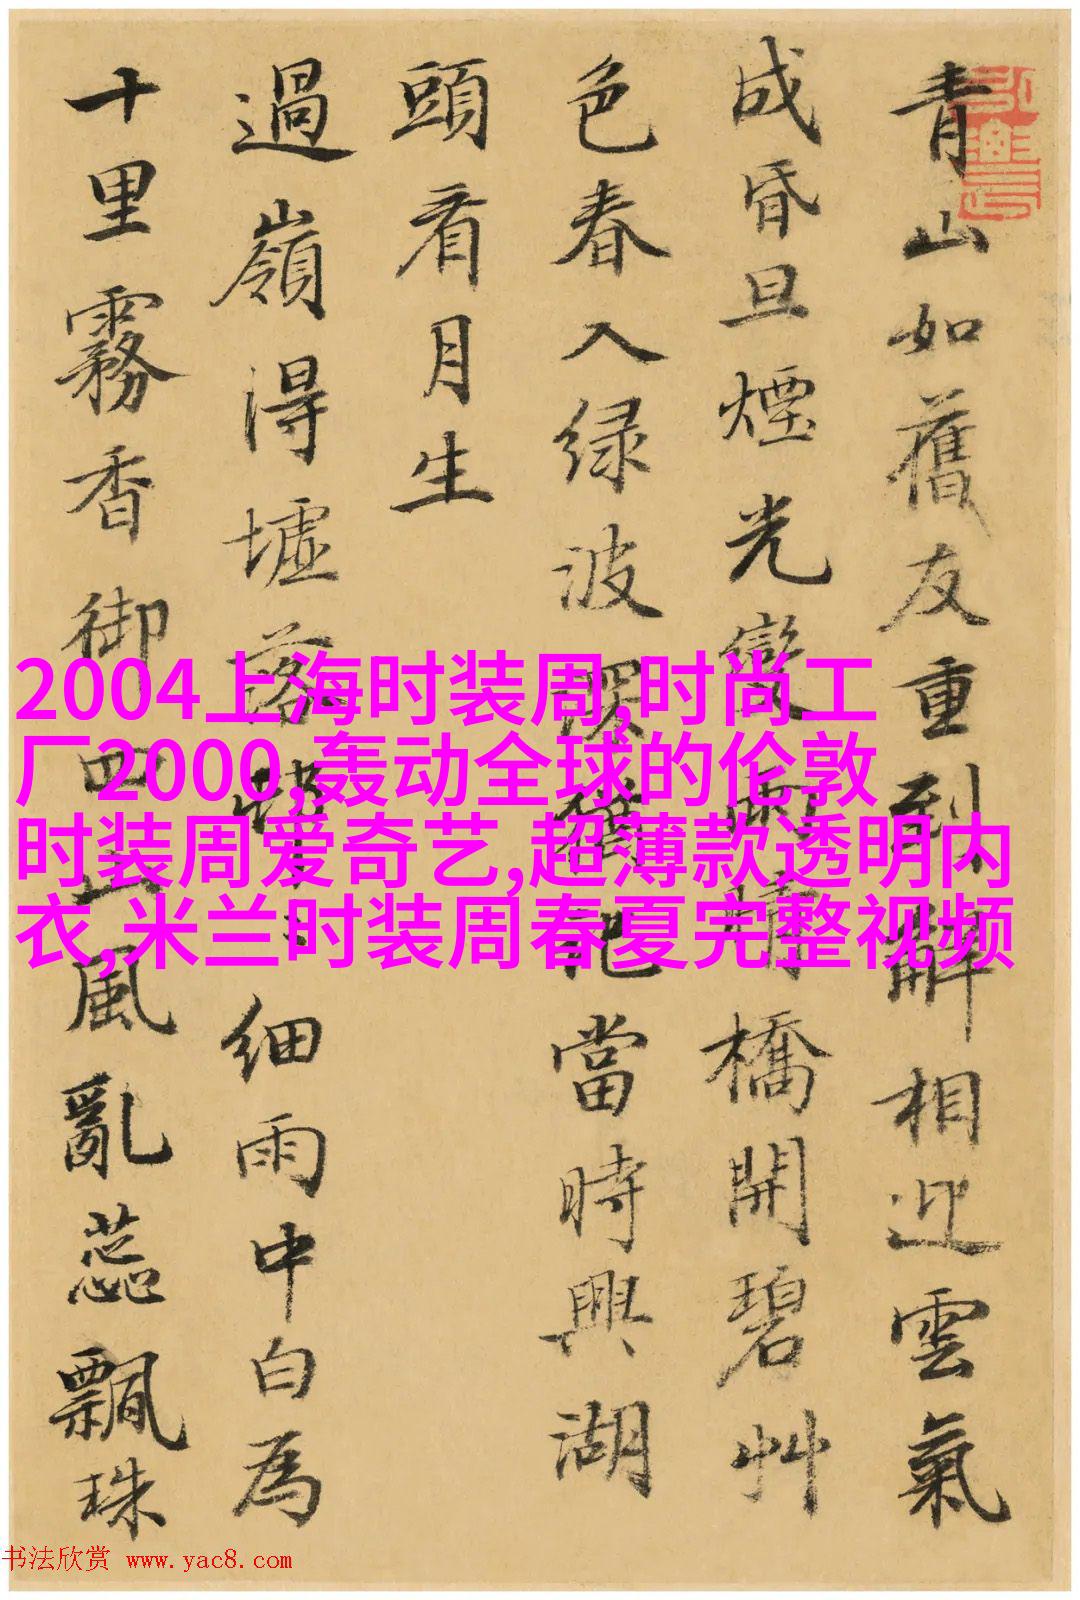 青山如舊友重到解相迎雲氣
成昏旦煙光變雨晴橋開碧艸
色春入绿波深猶記當時興湖
頭看月生
過嶺得墟落
細雨中白為
十里霧香御四山風亂蕊飄珠
2004上海时装周,时尚工
厂2000,轰动全球的伦敦
时装周爱奇艺,超薄款透明内
衣,米兰时装周春夏完整视频
书法欣赏 www.yac8.com